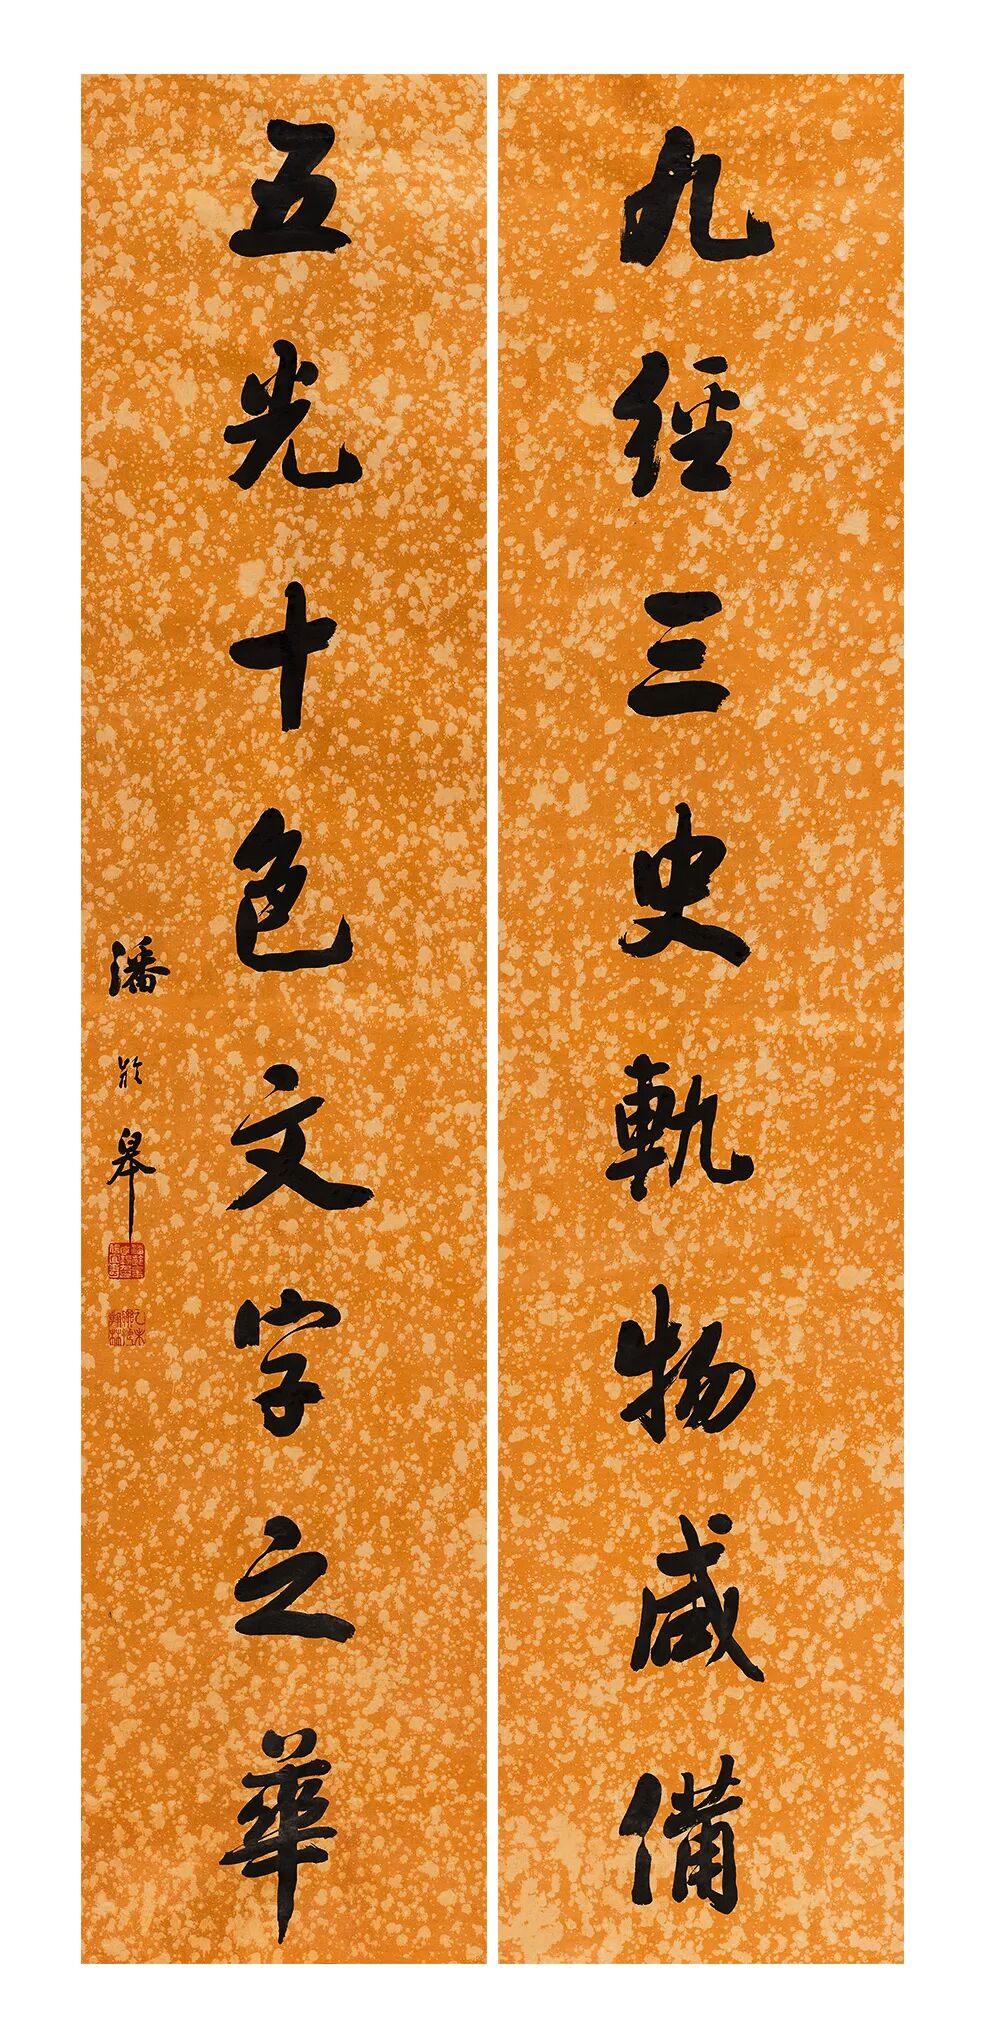 九經三史軌物咸備
五光十色文字之華
潘齡皋